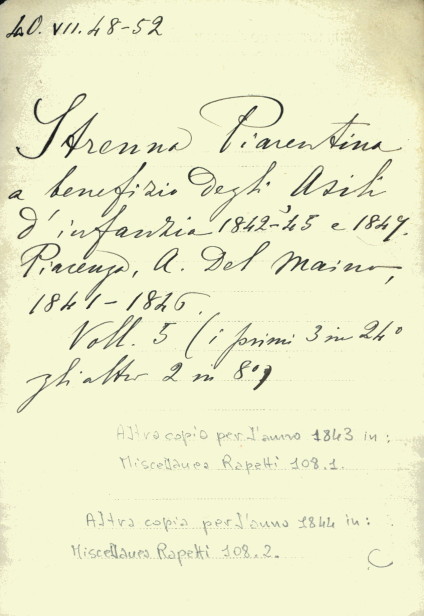 LO. VII. 48-52
Strenna Piacentina
a benefizio degli Asili
d'infanzia 1842-45 e 1847.
Piacenza, A. Del Maino,
1841-1846.
Voll. 5 (i primi 3 in 24°
gli altri 2 in 8°)
Altra copia per l'anno 1843 in:
Miscellanea Rapetti 108.1.
Altra copia per l'anno 1844 in:
Miscellanea Rapetti 108.2.
C